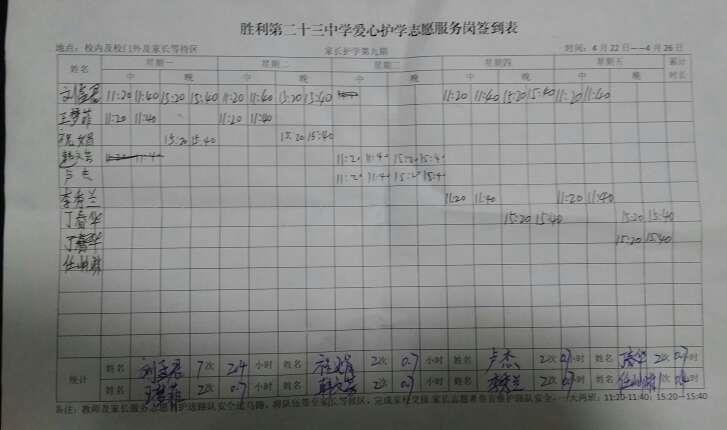 胜利第二十三中学爱心护学志愿服务岗签到表
地点：校内及校门外及家长等待区 家长护学第九期 时间：4月22日——4月26日
姓名 星期一 星期二 星期三 星期四 星期五 累计时长
中 晚 中 晚 中 晚 中 晚 中 晚
11:20 11:40 15:20 15:40 11:20 11:40 15:20 15:40 11:20 11:40 15:20 15:40 11:20 11:40
王梦菲 11:20 11:40 11:20 11:40
祝娟 15:20 15:40 15:20 15:40
11:20 11:40 11:20 11:40 15:20 15:40
卢杰 11:20 11:40 15:20 15:40
李秀兰 11:20 11:40 11:20 11:40
丁春华 15:20 15:40 15:20 15:40
丁春华 15:20 15:40
统计 姓名 7次 2.4小时 姓名 2次 0.7小时 姓名 卢杰 2次 0.7小时 姓名 2次 0.7小时
姓名 王梦菲 2次 0.7小时 姓名 2次 0.7小时 姓名 李秀兰 2次 0.7小时 姓名
备注：教师及家长服务志愿者护送路队安全过马路，将队伍带至家长等待区，完成家校交接 大两班：11:20-11:40；15:20—15:40